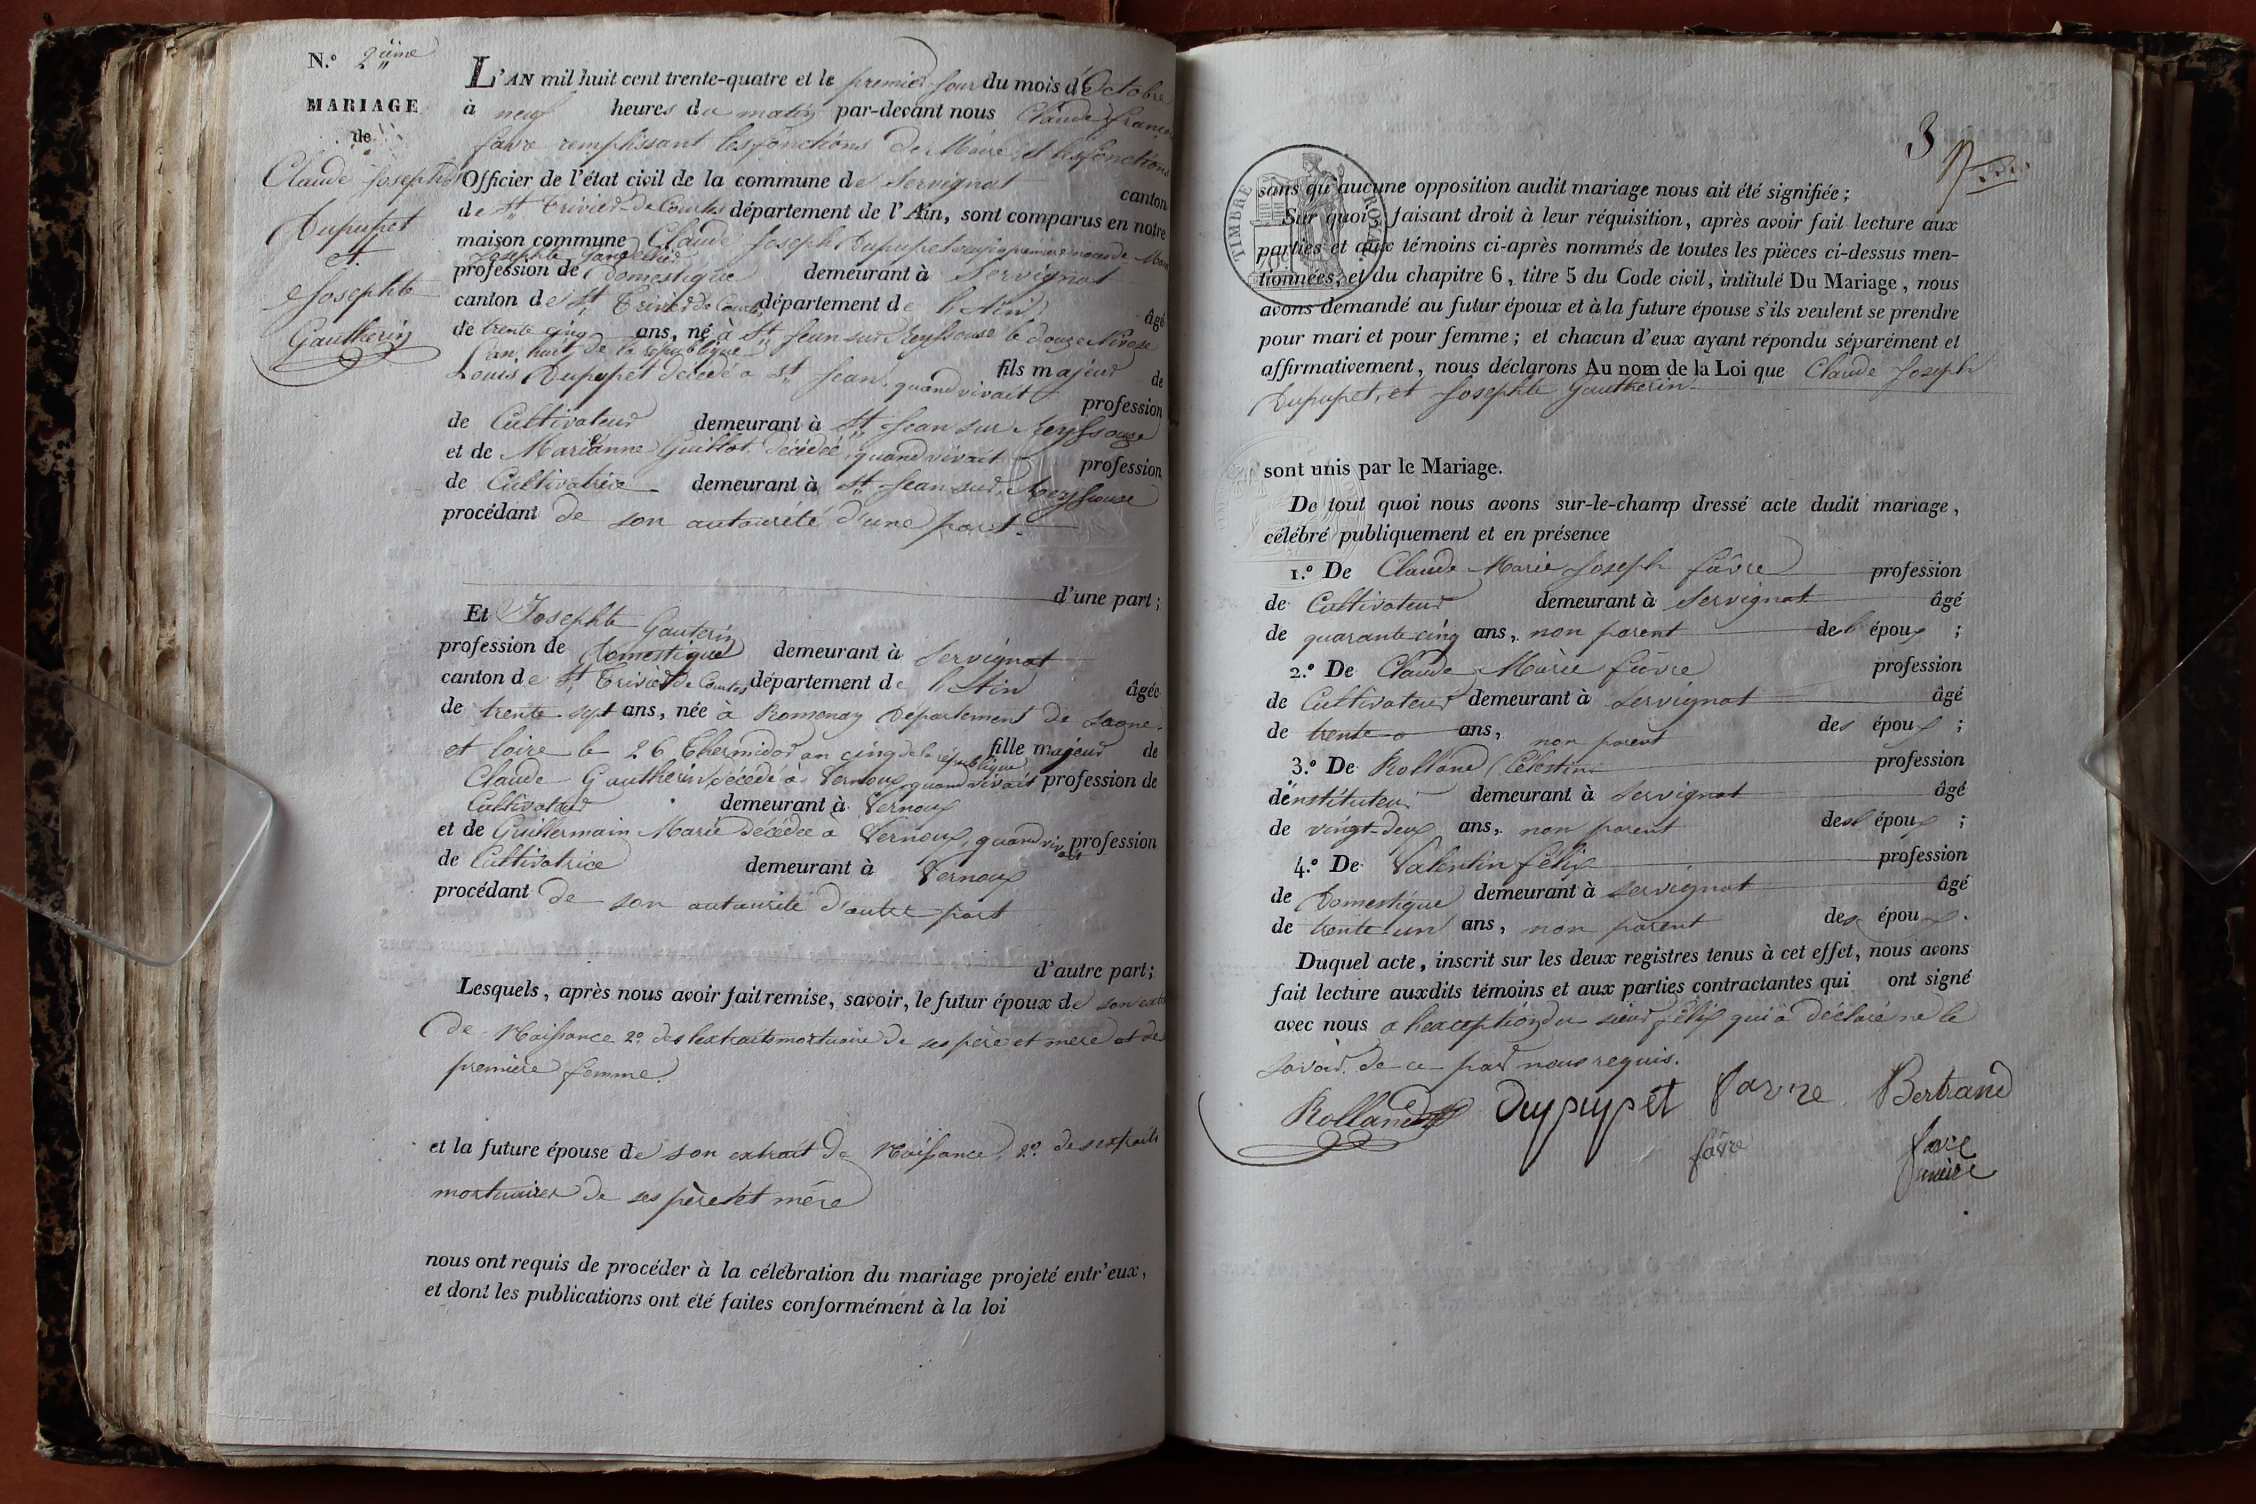 N.o 2.ième
MARIAGE
de
Claude Joseph
Dupupet
et
Josephte
Gautherin
L'AN mil huit cent trente-quatre et le premier jour du mois d'Octobre
à neuf heures du matin par-devant nous Claude françois
favre remplissant les fonctions de Maire et les fonctions
Officier de l'état civil de la commune de Servignat canton
de St Trivier-de Courtes département de l'Ain, sont comparus en notre
maison commune Claude Joseph Dupupet premiere noces de
Josephte
profession de Domestique demeurant à Servignat
canton de St Trivier de Courtes département de l'Ain âgé
de trente cinq ans, né à St Jean sur Reyssouse le douze Nivose
l'an huit de la republique fils majeur de
Louis Dupupet décédé a St Jean, quand vivait profession
de Cultivateur demeurant à St Jean sur Reyssouze
et de Marianne Guillot décédée, quand vivait profession
de Cultivatrice demeurant à St Jean sur Reyssouse
procédant de son autaurité d'une part.
d'une part;
Et Josephte Gauterin
profession de Domestique demeurant à Servignat
canton de St Trivier de Courtes département de l'Ain âgée
de trente sept ans, née à Romenay Département de Saone
et loire le 26 Thermidor an cinq de la république fille majeur de
Claude Gautherin décédé à Vernoux, quand vivait profession de
Cultivateur demeurant à Vernoux
et de Guillermain Marie décédée à Vernoux, quand vivait profession
de Cultivatrice demeurant à Vernoux
procédant de son autaurité d'autre part
d'autre part;
Lesquels, après nous avoir fait remise, savoir, le futur époux de son
de Naissance 2o des lextraits mortuaire de ses père et mere et de
première femme.
et la future épouse de son extrait de Naissance, 2o des extraits
mortuaires de ses père et mère
nous ont requis de procéder à la célébration du mariage projeté entr'eux,
et dont les publications ont été faites conformément à la loi
3
TIMBRE ROYAL
sans qu'aucune opposition audit mariage nous ait été signifiée;
Sur quoi faisant droit à leur réquisition, après avoir fait lecture aux
parties et aux témoins ci-après nommés de toutes les pièces ci-dessus men-
tionnées, et du chapitre 6, titre 5 du Code civil, intitulé Du Mariage, nous
avons demandé au futur époux et à la future épouse s'ils veulent se prendre
pour mari et pour femme; et chacun d'eux ayant répondu séparément et
affirmativement, nous déclarons Au nom de la Loi que Claude Joseph
Dupupet, et Josephte Gautherin
sont unis par le Mariage.
De tout quoi nous avons sur-le-champ dressé acte dudit mariage,
célébré publiquement et en présence
1.o De Claude Marie Joseph favre profession
de Cultivateur demeurant à Servignat âgé
de quarante cinq ans, non parent del époux ;
2.o De Claude Marie favre profession
de Cultivateur demeurant à Servignat âgé
de trente ans, non parent des époux ;
3.o De Rolland Célestin profession
d'instituteur demeurant à Servignat âgé
de vingt-deux ans, non parent des époux ;
4.o De Valentin félix profession
de Domestique demeurant à Servignat âgé
de trente un ans, non parent des époux.
Duquel acte, inscrit sur les deux registres tenus à cet effet, nous avons
fait lecture auxdits témoins et aux parties contractantes qui ont signé
avec nous a l'exception du sieur félix qui a déclaré ne le
savoir de ce par nous requis.
Rolland Dupupet favre Bertrand
favre favre
maire